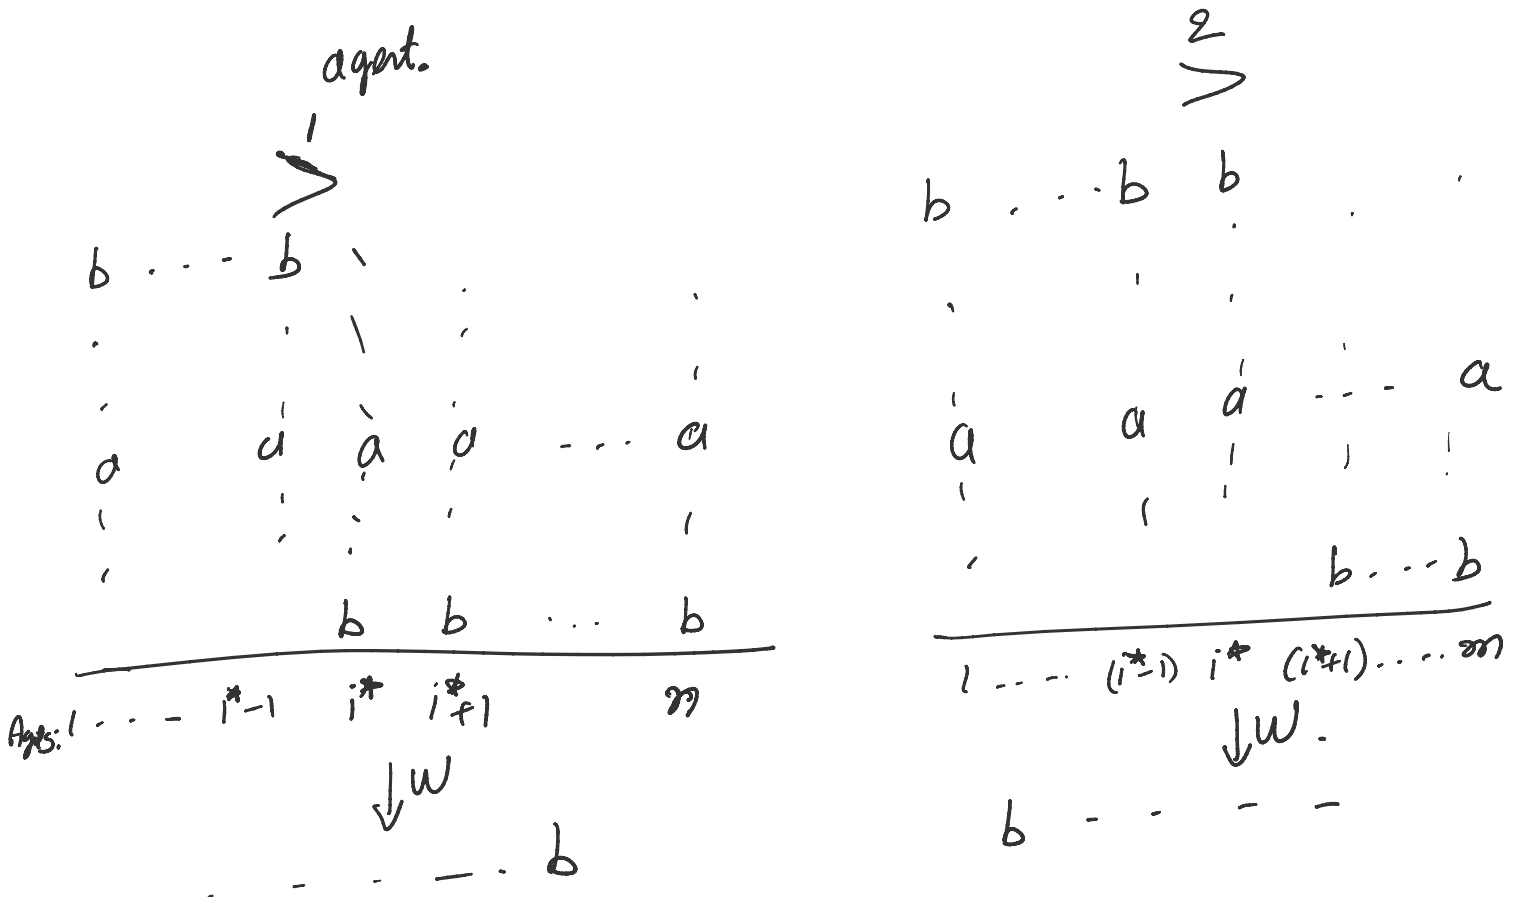 agent.
1
>
b . . - b \
a a a a . . . a
b b . . . b
Agts: 1 . . . - i*-1 i* i*+1 n
↓ W
. - - — . b
2
>
b . . . b b
a a a - - - a
b . . . b
1 - - - - (i*-1) i* (i*+1) . . . . n
↓ W .
b - - - -